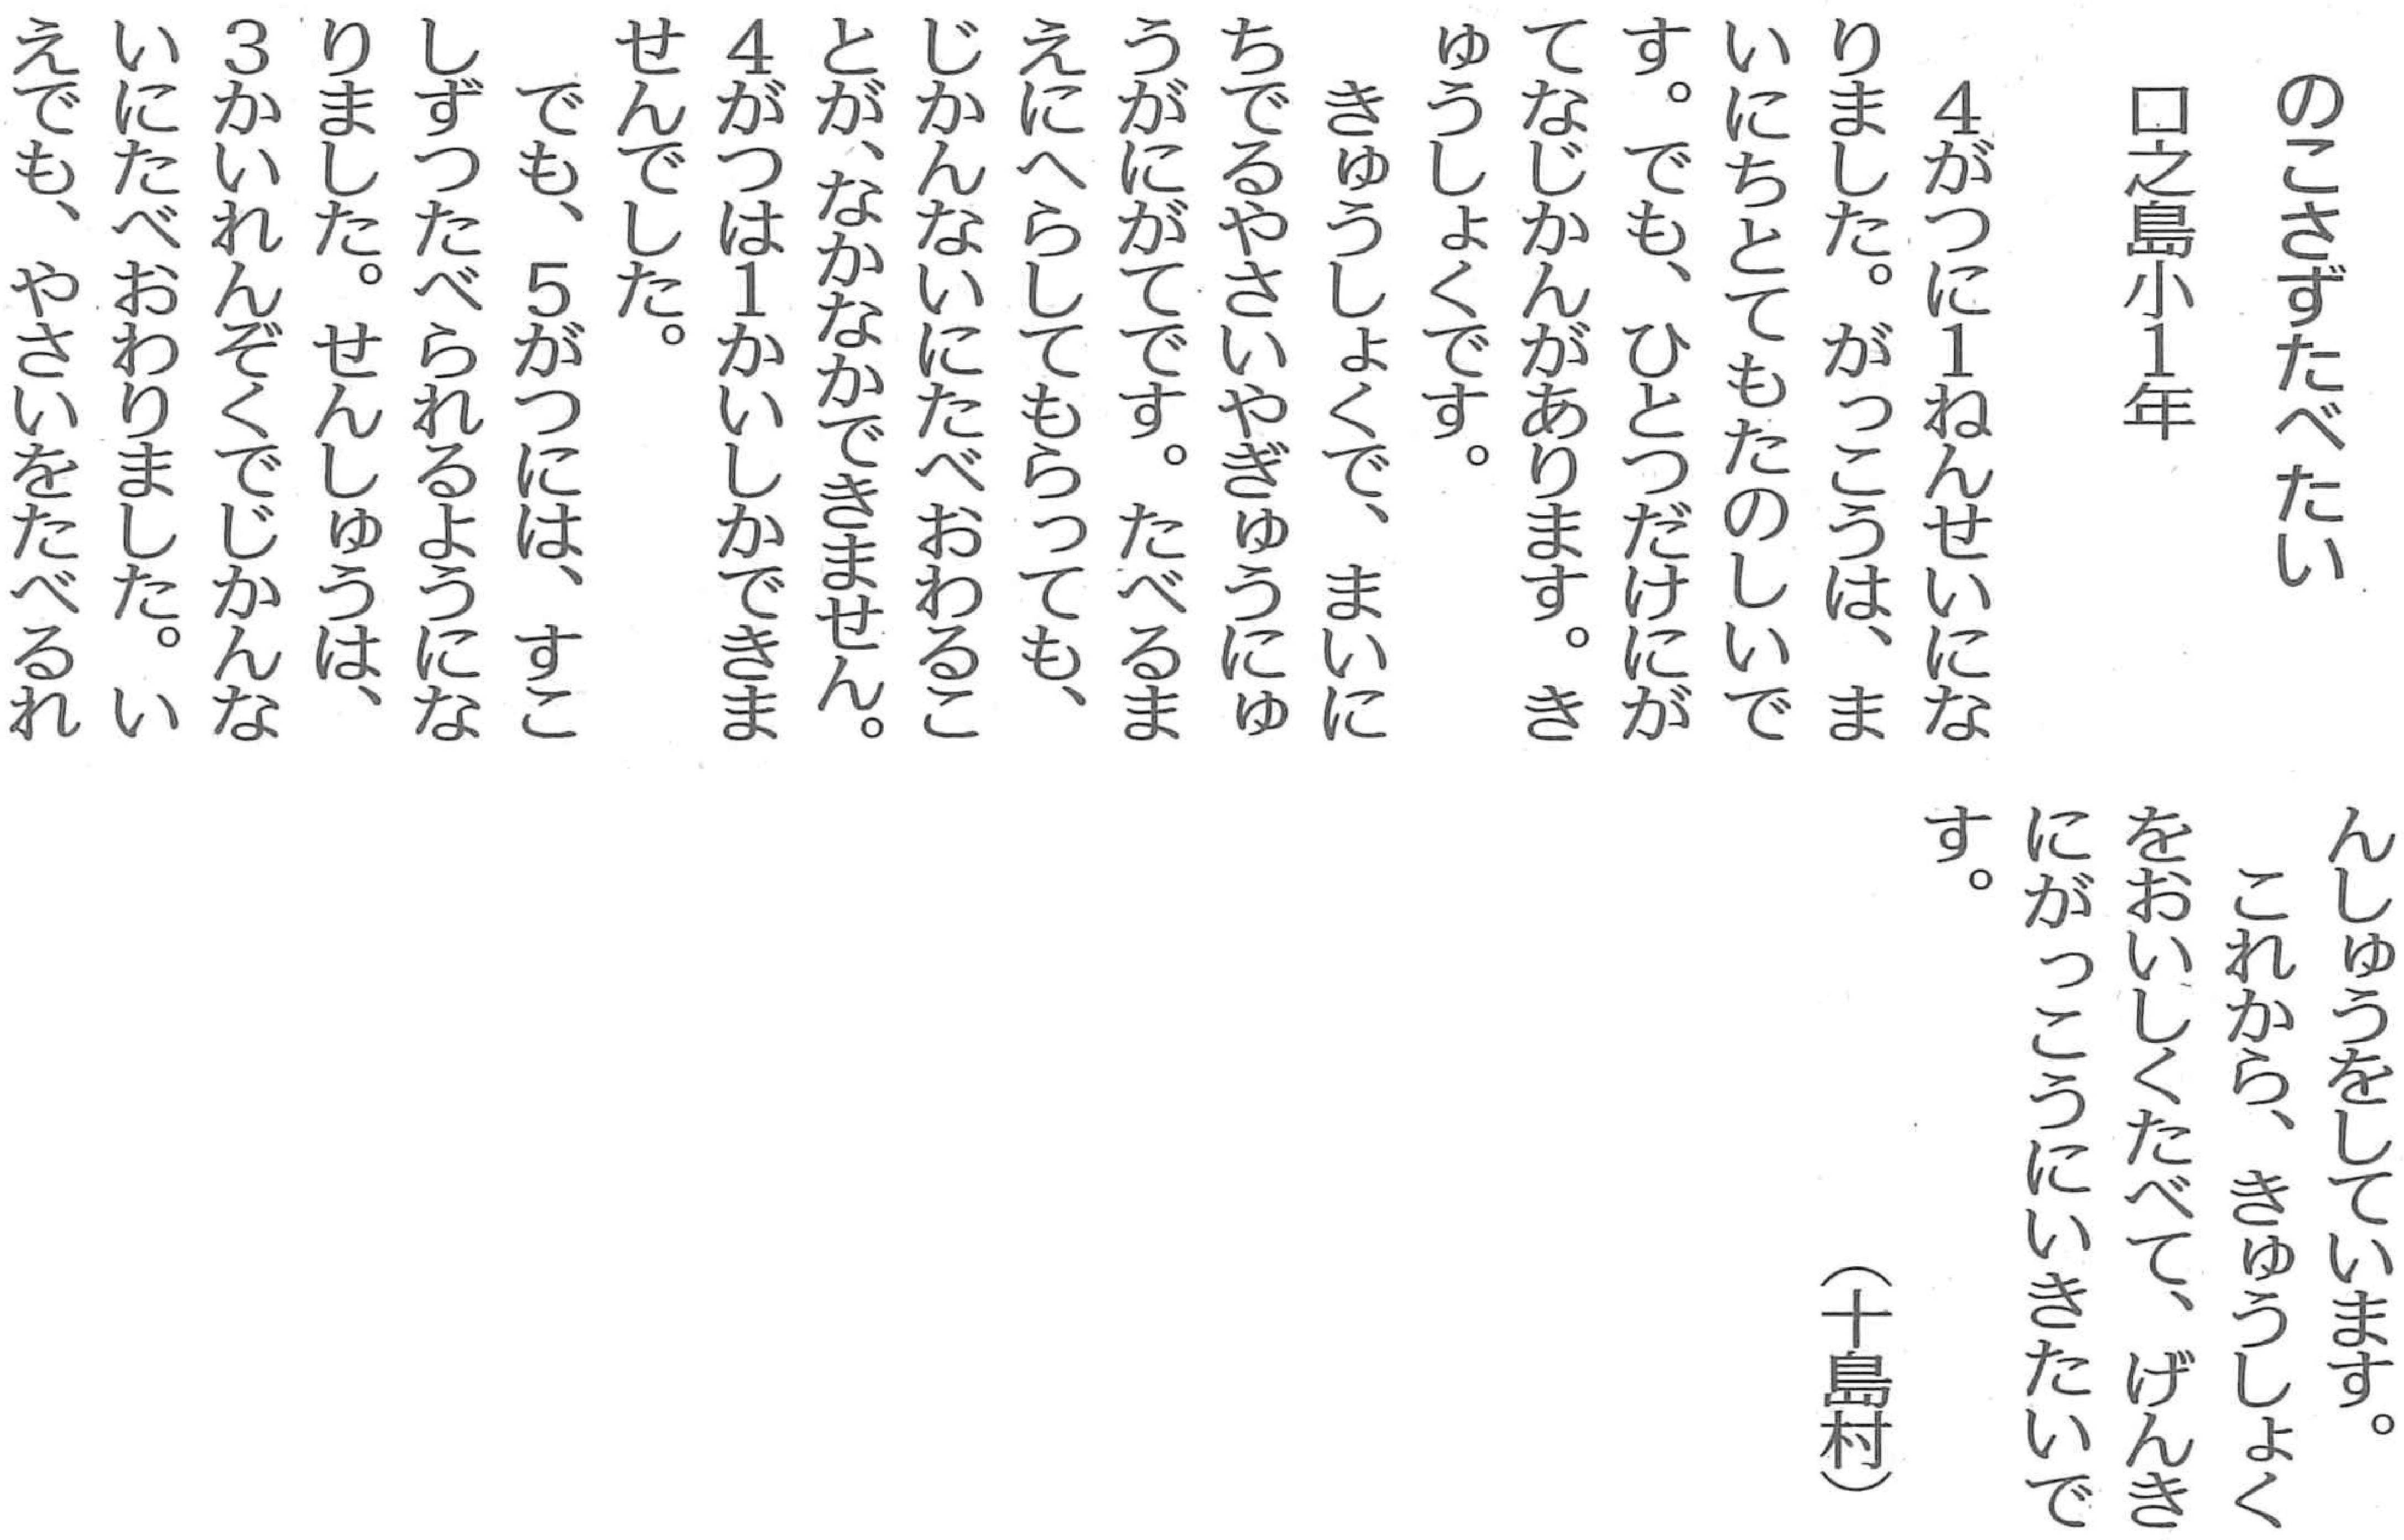 のこさずたべたい
口之島小1年
　4がつに1ねんせいにな
りました。がっこうは、ま
いにちとてもたのしいで
す。でも、ひとつだけにが
てなじかんがあります。き
ゅうしょくです。
　きゅうしょくで、まいに
ちでるやさいやぎゅうにゅ
うがにがてです。たべるま
えにへらしてもらっても、
じかんないにたべおわるこ
とが、なかなかできません。
4がつは1かいしかできま
せんでした。
　でも、5がつには、すこ
しずつたべられるようにな
りました。せんしゅうは、
3かいれんぞくでじかんな
いにたべおわりました。い
えでも、やさいをたべるれ
んしゅうをしています。
　これから、きゅうしょく
をおいしくたべて、げんき
にがっこうにいきたいで
す。
（十島村）